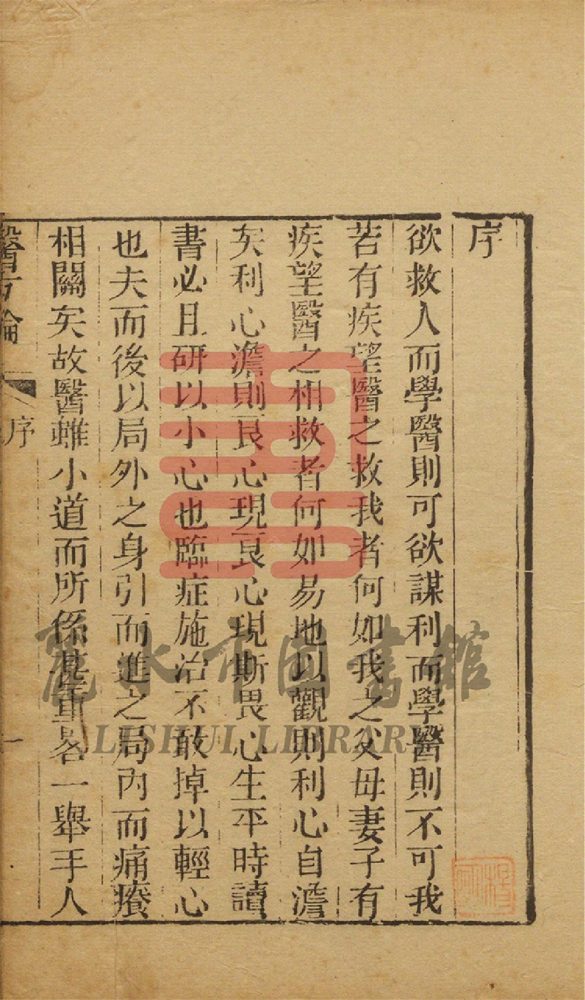 序
欲救人而學醫則可欲謀利而學醫則不可我
若有疾望醫之救我者何如我之父母妻子有
疾望醫之相救者何如易地以觀則利心自澹
矣利心澹則良心現良心現斯畏心生平時讀
書必且研以小心也臨症施治不敢掉以輕心
也夫而後以局外之身引而進之局內而痛癢
相關矣故醫雖小道而所係甚重畧一舉手人
醫方論
序
一
麗水市图書館
LISHUI LIBRARY